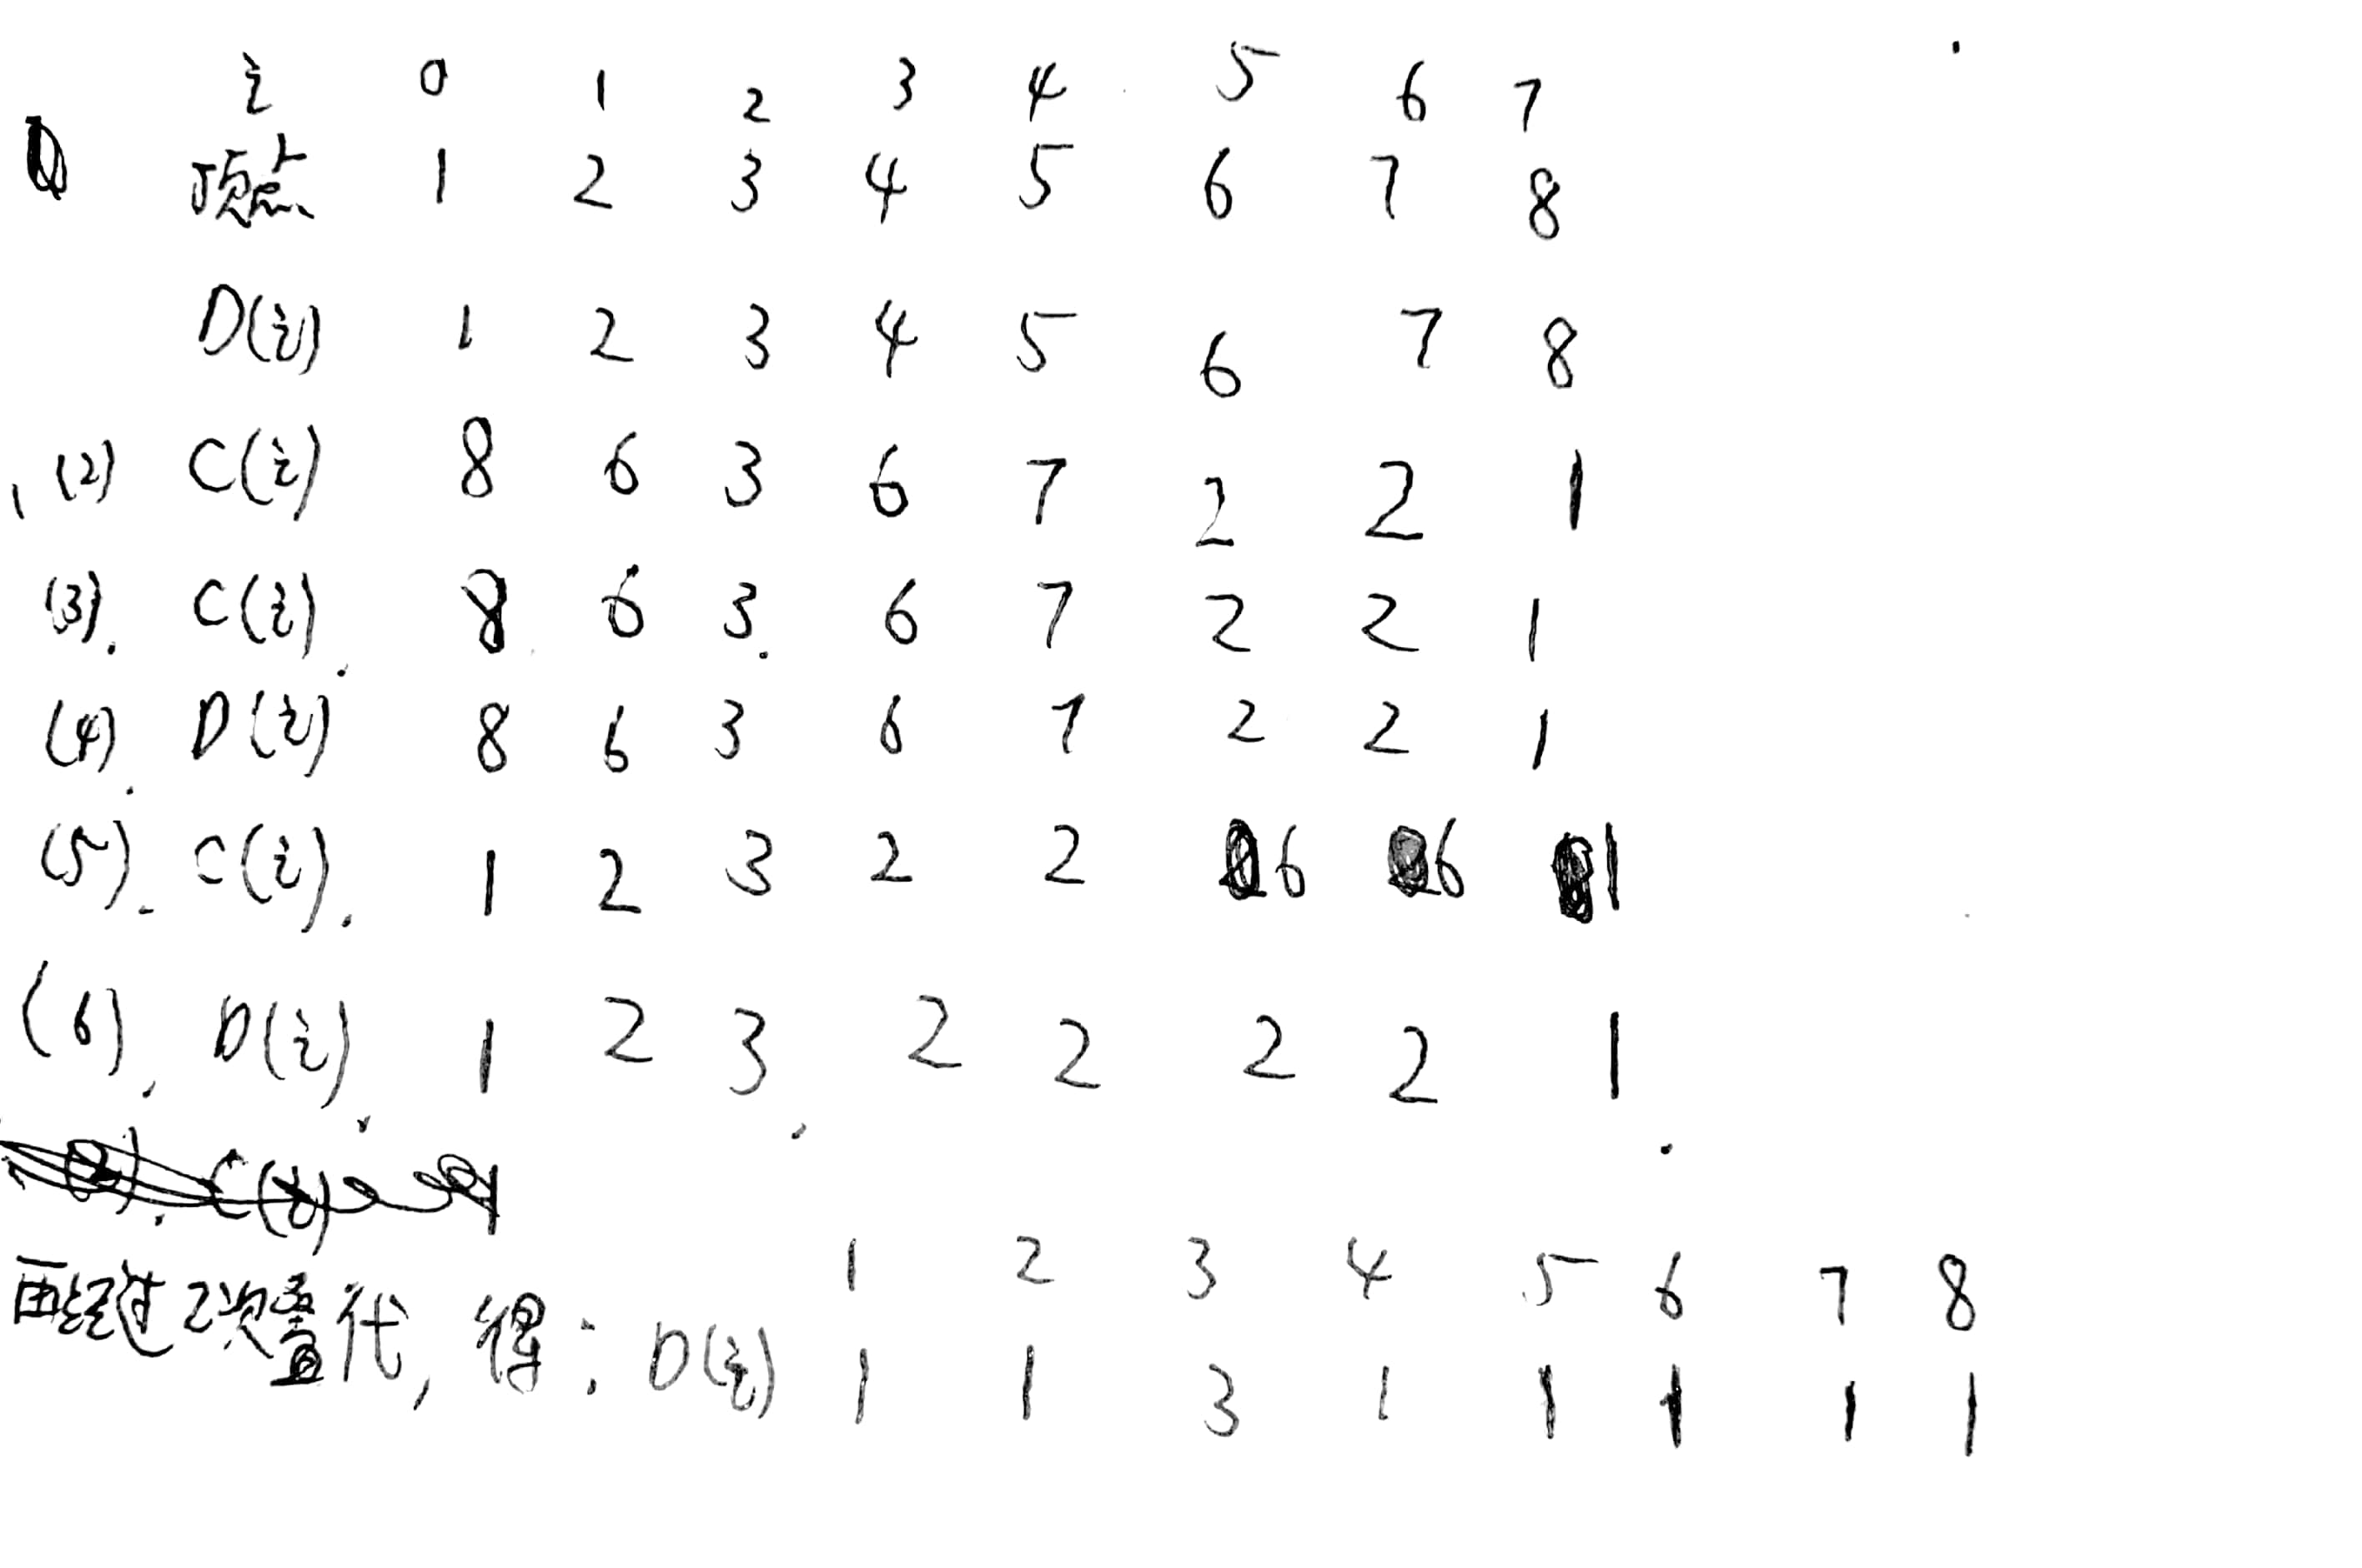 i 0 1 2 3 4 5 6 7
顶点 1 2 3 4 5 6 7 8
D(i) 1 2 3 4 5 6 7 8
(2) C(i) 8 6 3 6 7 2 2 1
(3). C(i). 8 6 3 6 7 2 2 1
(4). D(i) 8 6 3 6 7 2 2 1
(5). C(i). 1 2 3 2 2 6 6 1
(6). D(i). 1 2 3 2 2 2 2 1
1 2 3 4 5 6 7 8
再经过2次叠代，得：D(i) 1 1 3 1 1 1 1 1